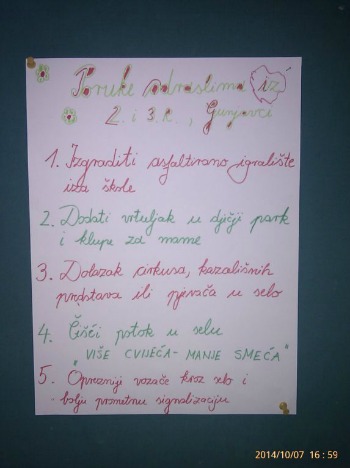 Poruke odraslima iz
2. i 3. r., Gunjavci
1. Izgraditi asfaltirano igralište
iza škole
2. Dodati vrtuljak u dječji park
i klupe za mame
3. Dolazak cirkusa, kazališnih
predstava ili pjevača u selo
4. Čišći potok u selu
"VIŠE CVIJEĆA - MANJE SMEĆA"
5. Oprezniji vozače kroz selo i
bolju prometnu signalizaciju
2014/10/07 16:59